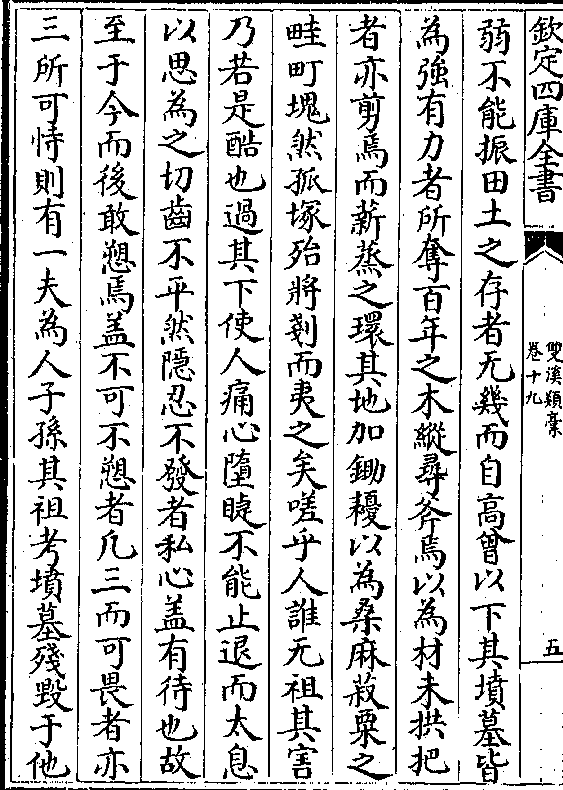 欽定四庫全書
雙溪類稾
卷十九
五
弱不能振田土之存者无㡬而自高曾以下其墳墓皆
為強有力者所奪百年之木縱尋斧焉以為材未拱把
者亦剪焉而薪蒸之環其地加鋤耰以為桑麻菽粟之
畦町塊然孤塚殆將剗而夷之矣嗟乎人誰无祖其害
乃若是酷也過其下使人痛心墮睫不能止退而太息
以思為之切齒不平然隱忍不發者私心盖有待也故
至于今而後敢愬焉盖不可不愬者凡三而可畏者亦
三所可恃則有一夫為人子孫其祖考墳墓殘毁于他